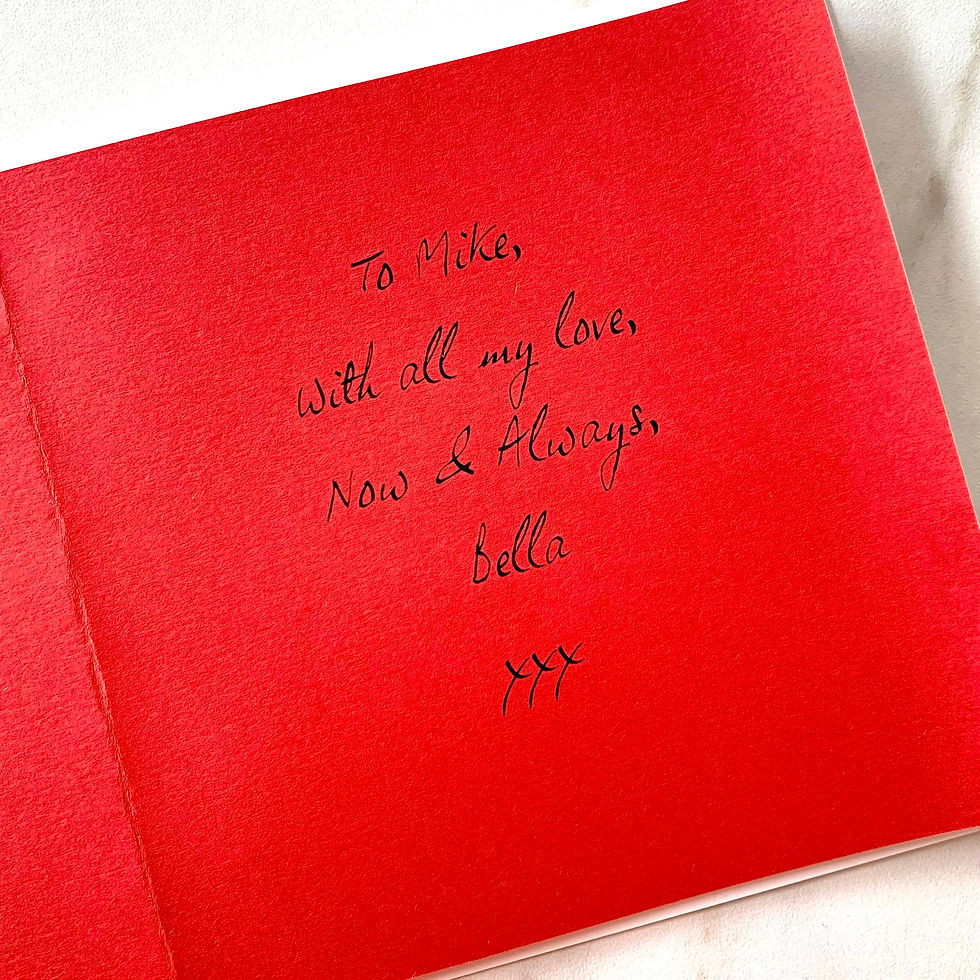 To Mike,
With all my love,
Now & Always,
Bella
xxx